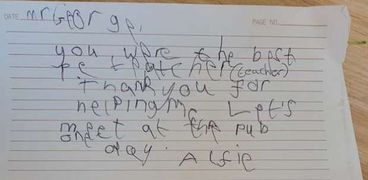 DATE
PAGE NO.
mr George,
you were the best
pe thatcher (teacher)
Thank you for
helping m Let's
meet at the pub
one day. Alfie